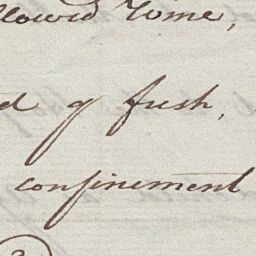 allowed Tome,
of fresh,
confinement